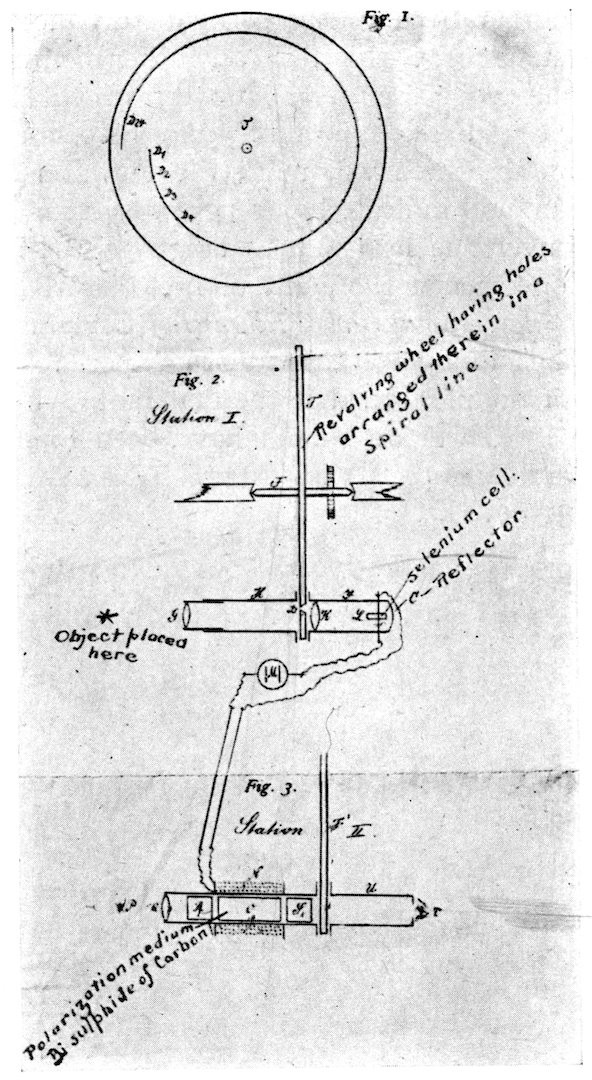 Fig. 1.
T
D24
D1
D2
D3
D4
Fig. 2.
Station I.
T
Revolving wheel having holes
arranged therein in a
Spiral line
J
selenium cell.
a-Reflector
H
G
D
K
L
Object placed
here
Fig. 3.
Station
II
N
U
Polarization medium
Bi sulphide of Carbon